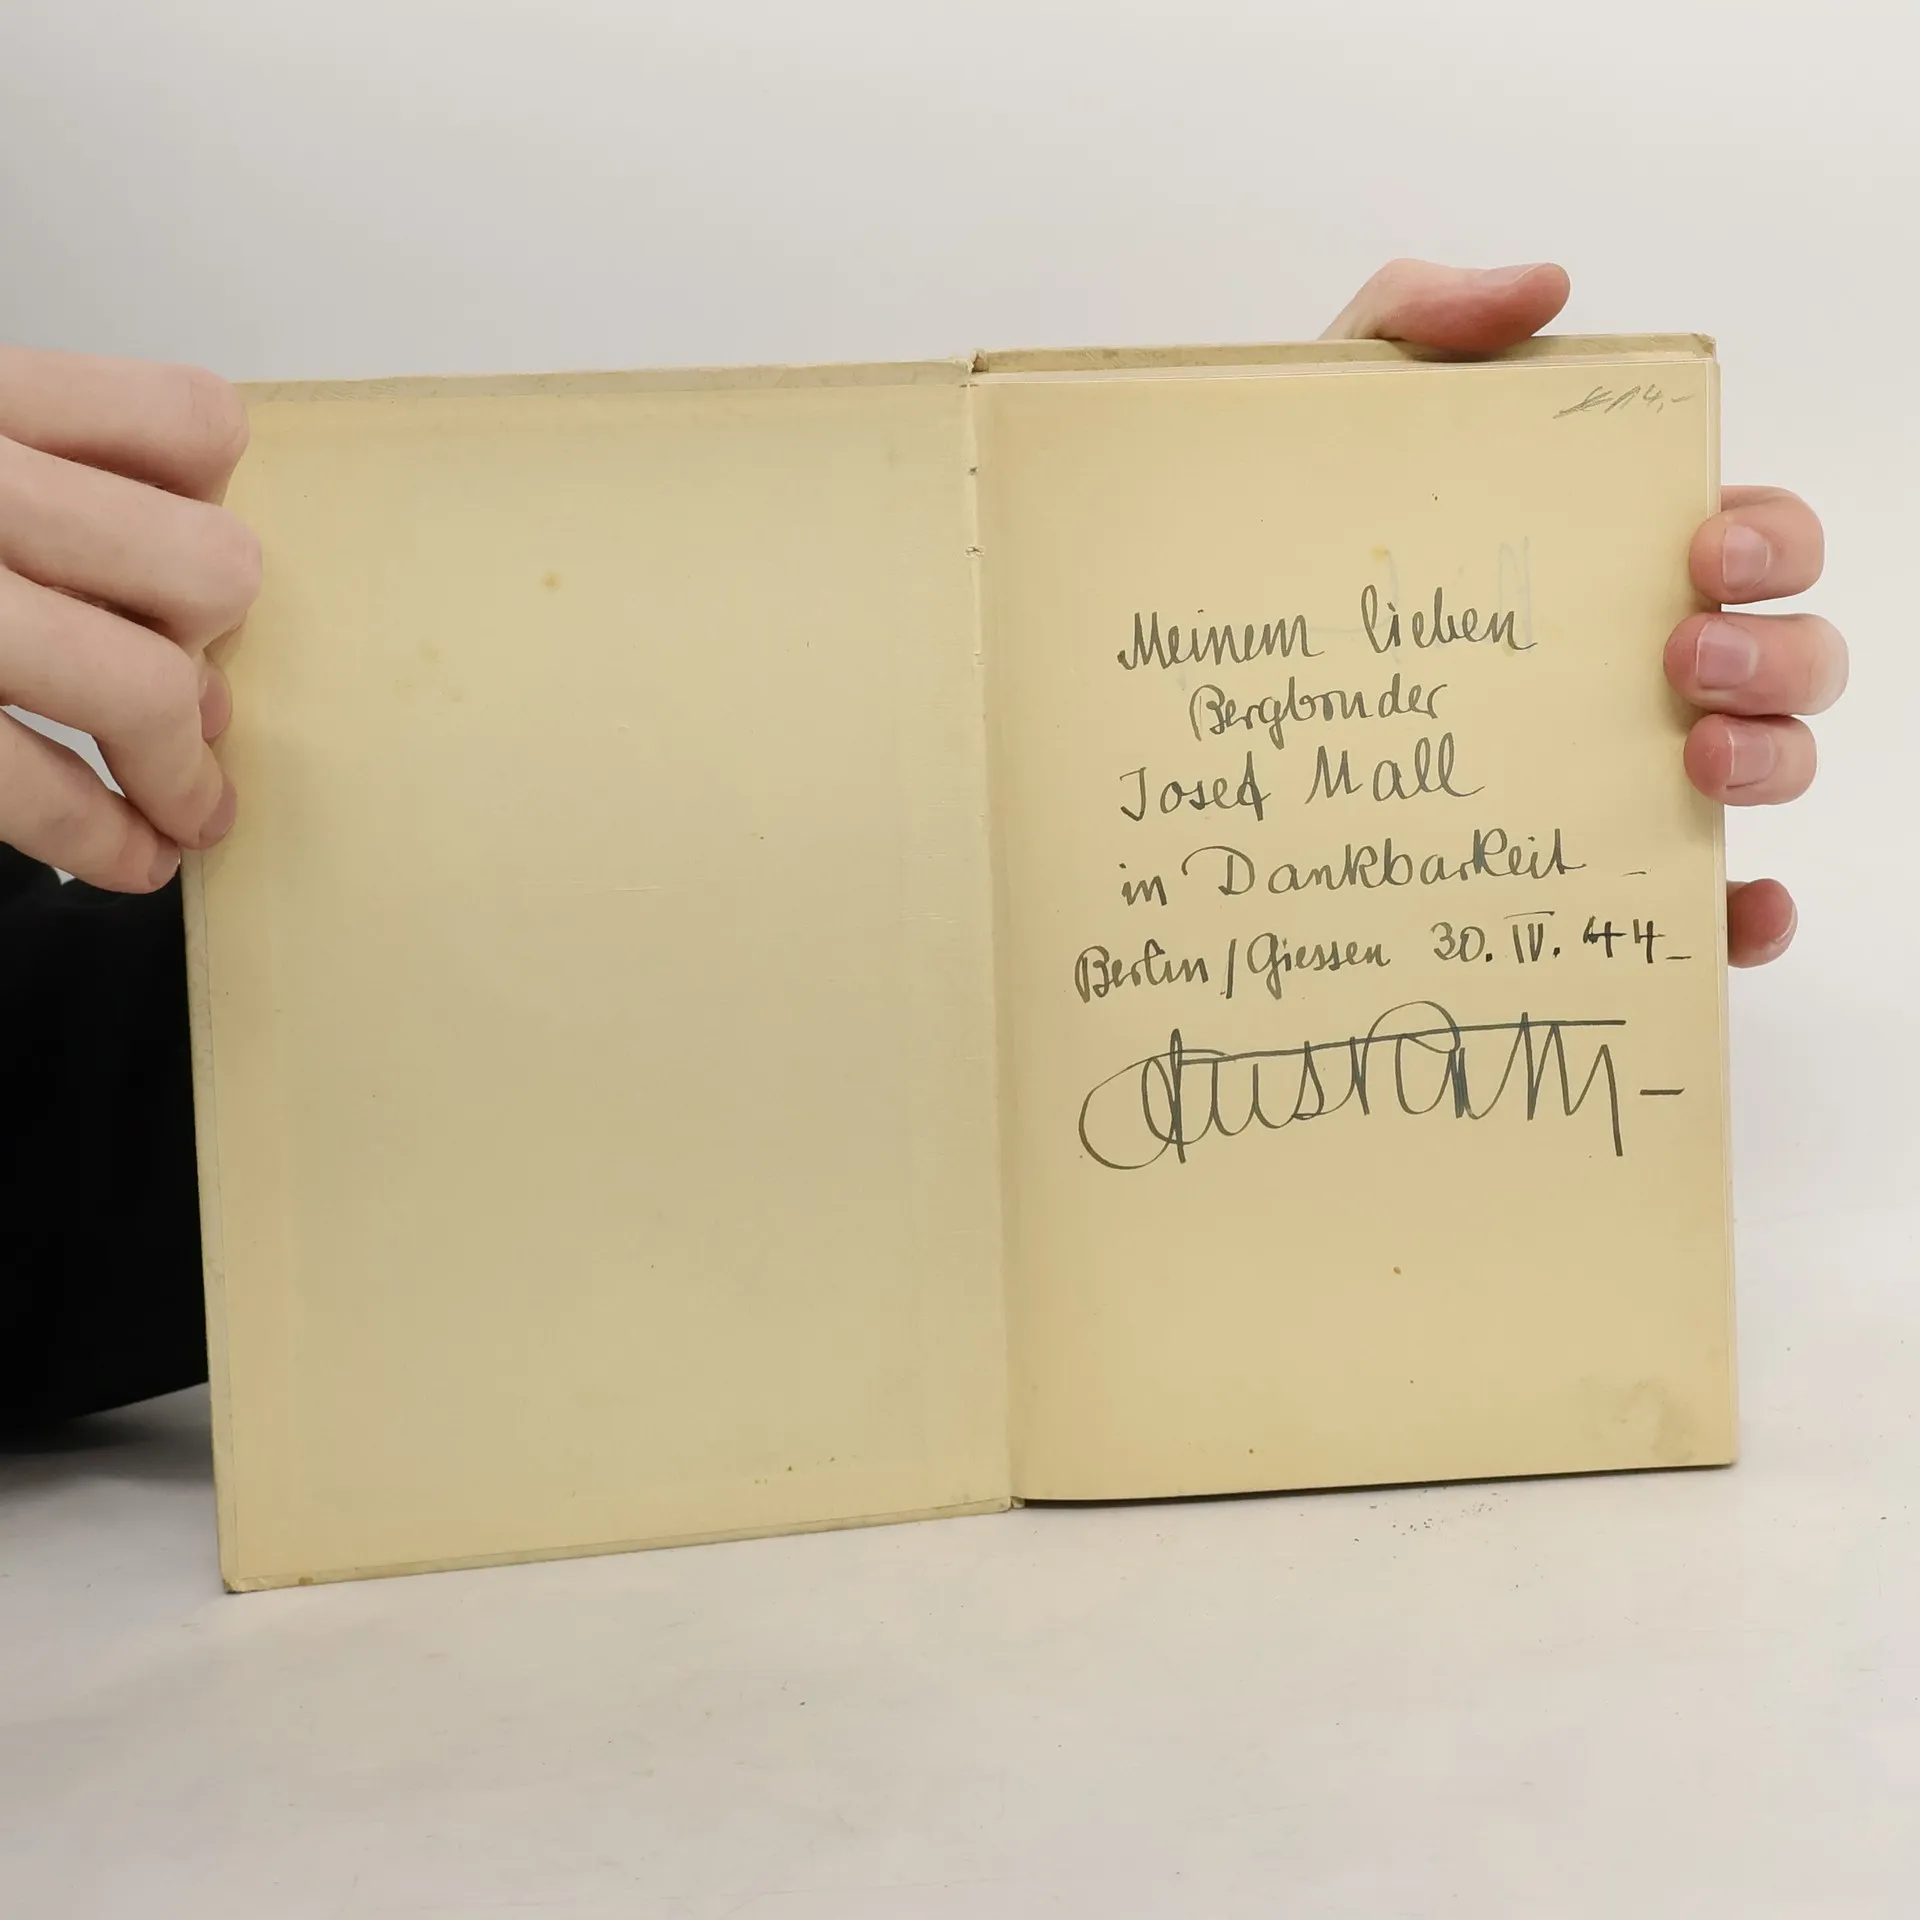 14,-
Meinem lieben
Bergbruder
Josef Mall
in Dankbarkeit -
Berlin / Giessen 30. IV. 44 -